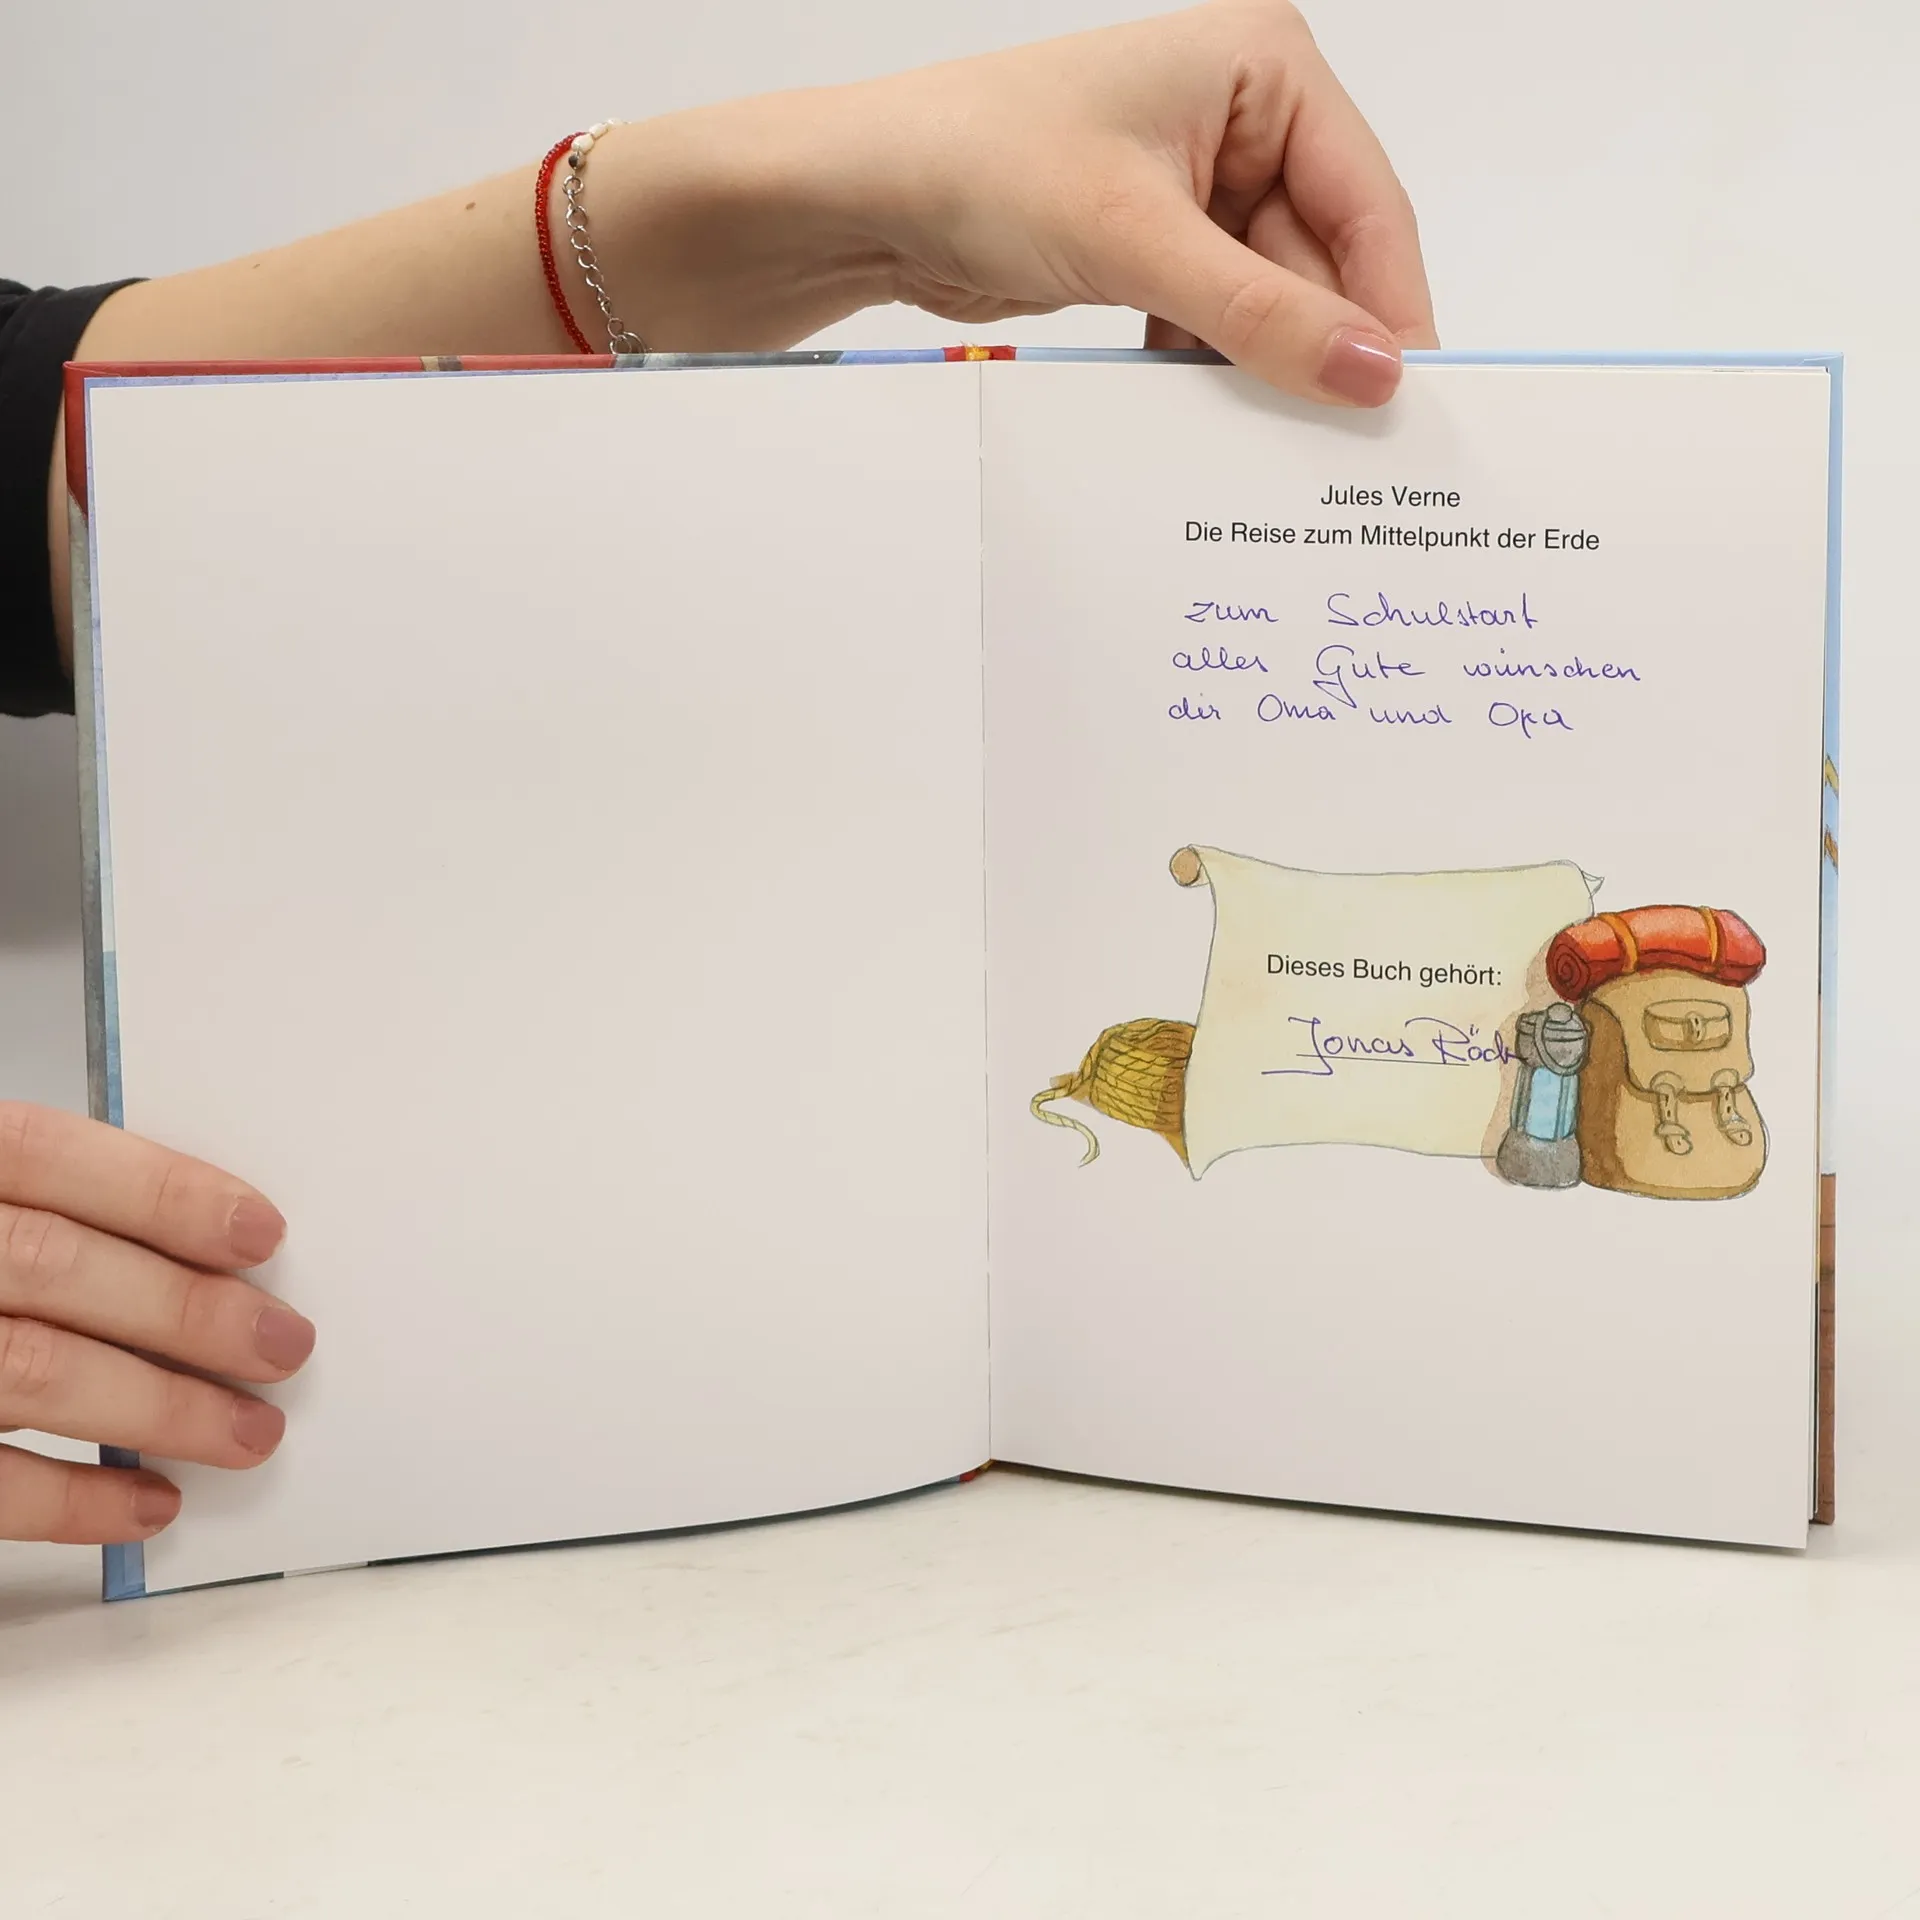 Jules Verne
Die Reise zum Mittelpunkt der Erde
zum Schulstart
alles Gute wünschen
dir Oma und Opa
Dieses Buch gehört:
Jonas